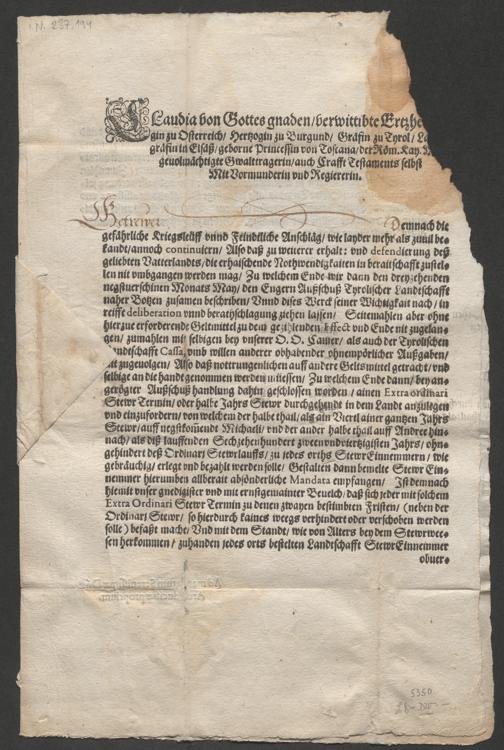 I.N. 237.194
Claudia von Gottes gnaden/verwittibte Ertzhe
gin zu Osterreich/ Hertzogin zu Burgund/ Gräfin zu Tyrol/ La
gräfin in Elsäß/ geborne Princessin von Toscana/der Röm. Kay.
gevolmächtigte Gwalttragerin/auch Crafft Testaments selbst
Mit Vormunderin vnd Regiererin.
Getrewer Demnach die
gefährliche Kriegsleüff vnnd Feindtliche Anschläg/ wie layder mehr als zuuil be⸗
kandt/annoch continuiern/ Also daß zu weiterer erhalt: vnd defendierung deß
geliebten Vatterlandts/die erhaischende Notwendigkeiten in beraitschafft zustel⸗
len nit vmbgangen werden mag/ Zu welchem Ende wir dann den dreyzehenden
negstuerschinen Monats May/ den Engern Außschuß Tyrolischer Landtschafft
naher Botzen zusamen beschriben/ Vnnd dises Werck seiner Wichtigkait nach/ in
reiffe deliberation vnnd berathschlagung ziehen lassen/ Seitemahlen aber ohne
hierzue erforderende Geltmittel zu dem gezihlenden Effect vnd Ende nit zugelan⸗
gen/ zumahlen mit selbigen bey vnserer O. O. Camer/ als auch der Tyrolischen
andtschafft Cassa/ vmb willen anderer obhabender ohnempörlicher Außgaben/
nit zugevolgen/ Also daß nottrungenlichen auff andere Geltsmittel getracht/ vnd
selbige an die handt genommen werden müessen/ Zu welchem Ende dann/ bey an⸗
geregter Außschuß handlung dahin geschlossen worden/ ainen Extraordinari
Stewr Termin/ oder halbe Jahrs Stewr durchgehendt in dem Landt anzulegen
vnd einzufordern/ von welchem der halbe thail/ als ain Viertl ainer gantzen Jahrs
Stewr/ auff negstkomēndt Michaeli/ vnd der ander halbe thail auff Andree hin⸗
nach/ als diß lauffenden Sechzehenhundert zwenvndviertzigisten Jahrs/ ohn⸗
gehindert deß Ordinari Stewrlauffs/ zu jedes orths StewrEinnemmern/ wie
gebräuchig/ erlegt vnd bezahlt werden solle/ Gestalten dann bemelte Stewr Ein⸗
nemmer hierumben allberait absönderliche Mandata empfangen/ Ist demnach
hiemit vnser gnedigister vnd mit ernst gemainter Beuelch/ daß sich jeder mit solchem
Extra Ordinari Stewr Termin zu denen zwayen bestimbten Fristen/ (neben der
Ordinari Stewr/ so hierdurch kaines weegs verhindert oder verschoben werden
solle) befaßt mache/ Vnd mit dem Standt/ wie von Alters bey dem Stewrwe⸗
sen herkommen/ zuhanden jedes orts bestelten Landtschafft StewrEinnemmer
ober⸗
5350